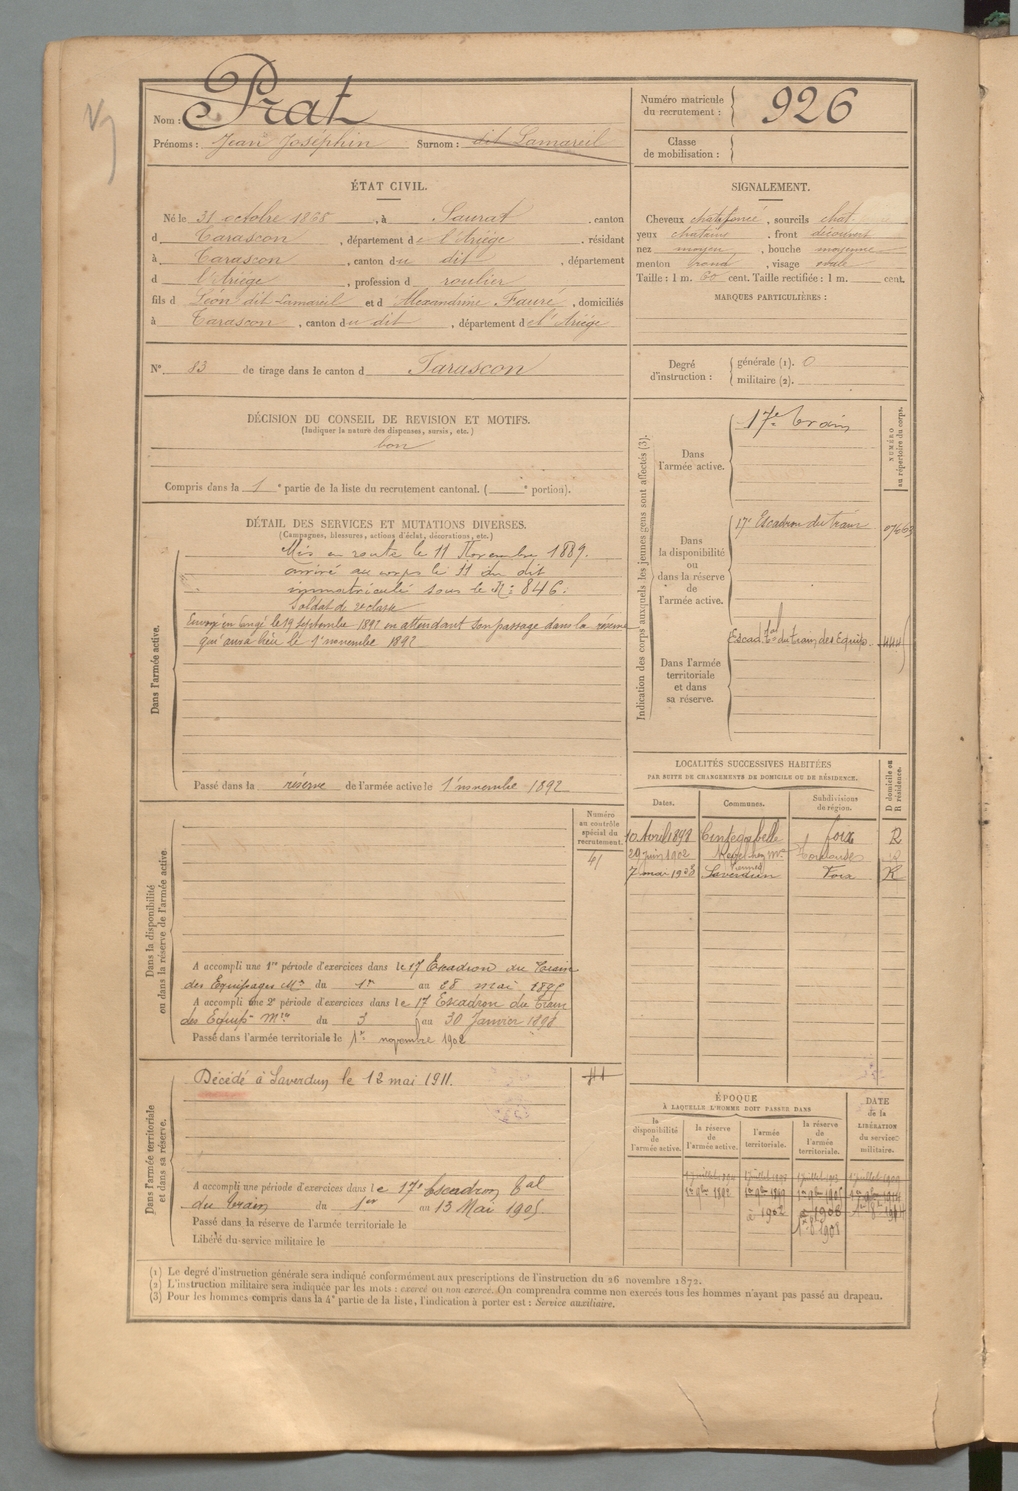 Nom : Prat
Prénoms : Jean Joséphin Surnom : dit Lamareil
Numéro matricule du recrutement : 926
Classe de mobilisation :
ÉTAT CIVIL.
Né le 31 octobre 1868, à Saurat, canton
d Tarascon, département de l'Ariège, résidant
à Tarascon, canton du dit, département
d l'Ariège, profession de roulier
fils d Léon dit Lamareil et d Alexandrine Fauré, domiciliés
à Tarascon, canton du dit, département de l'Ariège
N° 83 de tirage dans le canton d Tarascon
SIGNALEMENT.
Cheveux chat. foncé, sourcils chat.
yeux chatains, front découvert
nez moyen, bouche moyenne
menton rond, visage ovale
Taille : 1 m. 60 cent. Taille rectifiée : 1 m. cent.
MARQUES PARTICULIÈRES :
Degré d'instruction : générale (1). 0
militaire (2).
DÉCISION DU CONSEIL DE REVISION ET MOTIFS.
(Indiquer la nature des dispenses, sursis, etc.)
bon
Compris dans la 1e partie de la liste du recrutement cantonal. ( e portion).
DÉTAIL DES SERVICES ET MUTATIONS DIVERSES.
(Campagnes, blessures, actions d'éclat, décorations, etc.)
Dans l'armée active.
Mis en route le 11 Novembre 1889.
arrivé au corps le 11 du dit
immatriculé sous le N° 846.
Soldat de 2e classe
Envoyé en congé le 19 septembre 1892 en attendant son passage dans la réserve
qui aura lieu le 1er novembre 1892
Passé dans la réserve de l'armée active le 1er novembre 1892
Indication des corps auxquels les jeunes gens sont affectés (3).
NUMÉRO au répertoire du corps.
Dans l'armée active.
17e train
Dans la disponibilité ou dans la réserve de l'armée active.
17e Escadron du train
Dans l'armée territoriale et dans sa réserve.
Escad. Tal du train des Equip.
LOCALITÉS SUCCESSIVES HABITÉES
PAR SUITE DE CHANGEMENTS DE DOMICILE OU DE RÉSIDENCE.
Dates. Communes. Subdivisions de région. D domicile ou R résidence.
10 Avril 1898 Cintegabelle foix R
29 juin 1902 Toulouse R
7 mai 1908 Saverdun Foix R
Dans la disponibilité ou dans la réserve de l'armée active
Numéro au contrôle spécial du recrutement.
41
A accompli une 1re période d'exercices dans le 17 Escadron du Train
des Equipages Mre du 1er au 28 mai 1895
A accompli une 2e période d'exercices dans le 17 Escadron du Train
des Equip. Mre du 3 au 30 Janvier 1898
Passé dans l'armée territoriale le 1er novembre 1902
Dans l'armée territoriale et dans sa réserve.
Décédé à Saverdun le 12 mai 1911.
A accompli une période d'exercices dans le 17e Escadron Tal
du train du 1er au 13 Mai 1905
Passé dans la réserve de l'armée territoriale le
Libéré du service militaire le
ÉPOQUE
À LAQUELLE L'HOMME DOIT PASSER DANS
la disponibilité de l'armée active. la réserve de l'armée active. l'armée territoriale. la réserve de l'armée territoriale. DATE de la LIBÉRATION du service militaire.
1er 9bre 1892
à 1902
(1) Le degré d'instruction générale sera indiqué conformément aux prescriptions de l'instruction du 26 novembre 1872.
(2) L'instruction militaire sera indiquée par les mots : exercé ou non exercé. On comprendra comme non exercés tous les hommes n'ayant pas passé au drapeau.
(3) Pour les hommes compris dans la 4e partie de la liste, l'indication à porter est : Service auxiliaire.